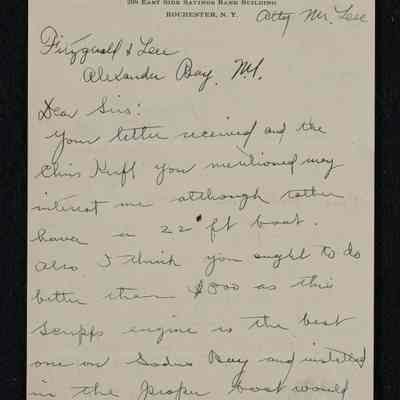 208 East Side Savings Bank Building
Rochester, N. Y.
Atty Mr. Lee
Fitzgerald & Lee
Alexander Bay, N.Y.
Dear Sirs:
Your letter received and the
Chris Kraft you mentioned may
interest me although rather
have a 22 ft boat.
Also I think you ought to do
better than $800 as this
Scripps engine is the best
one on Sodus Bay and installed
in the proper boat would